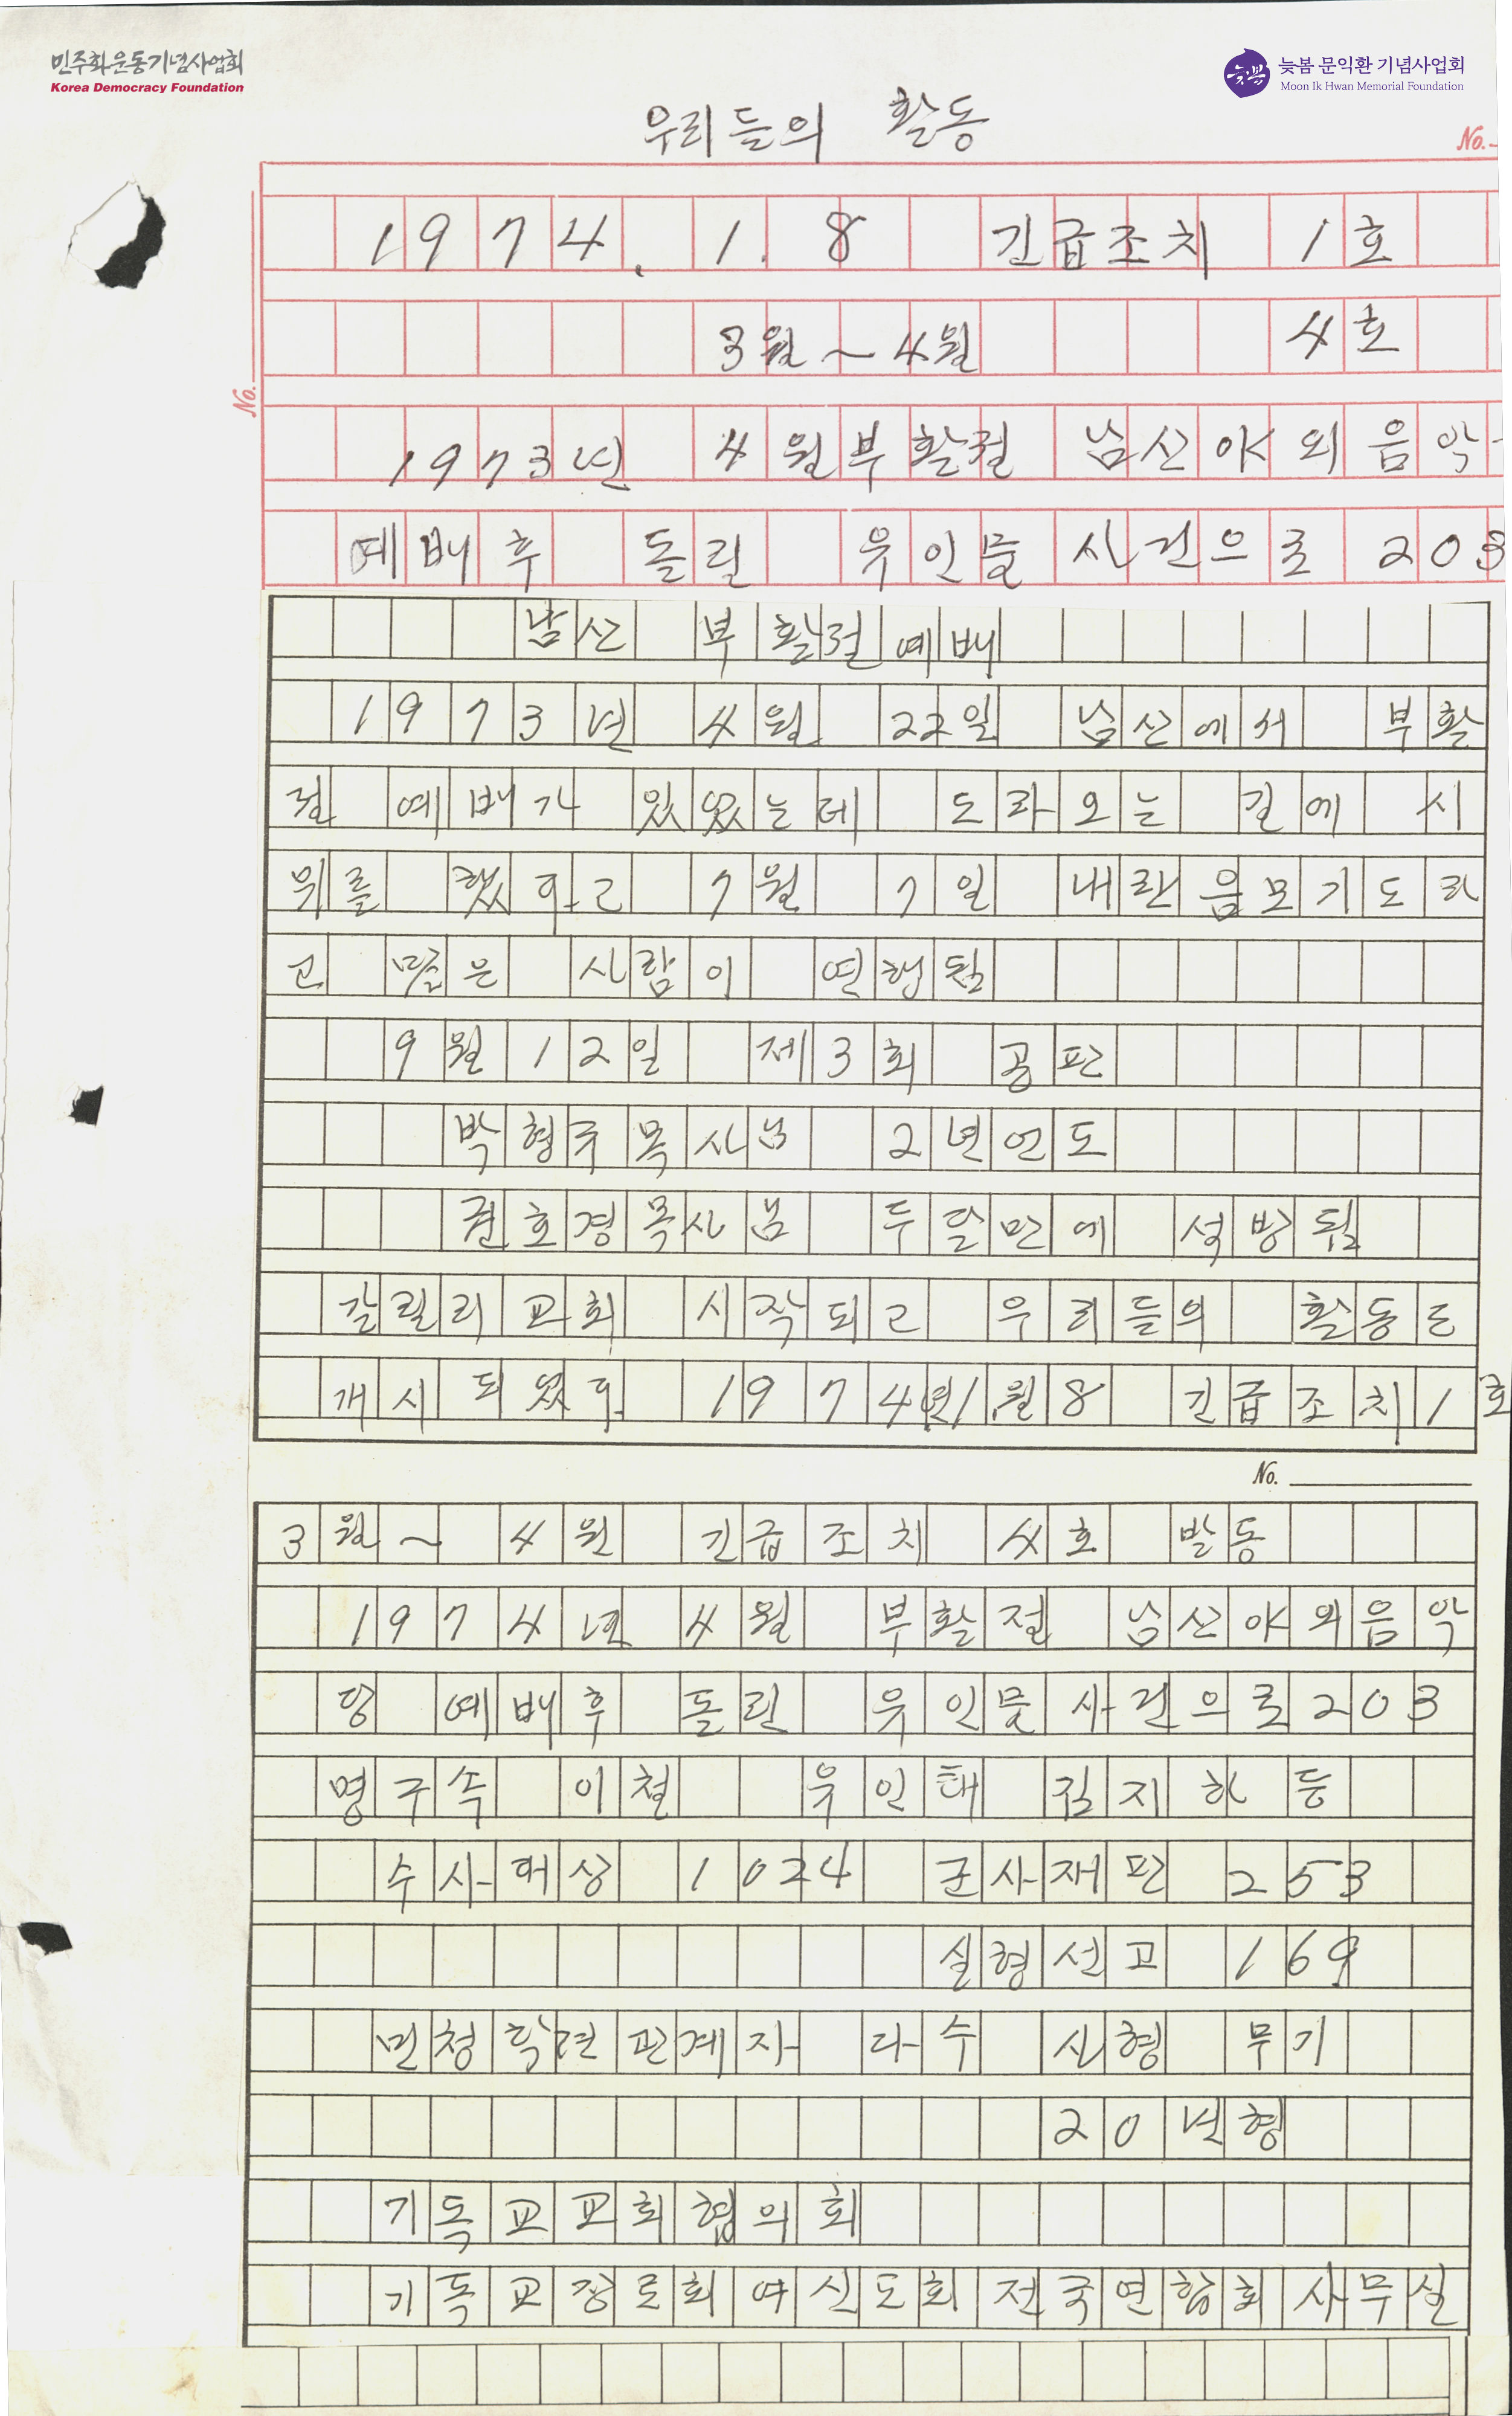 민주화운동기념사업회
Korea Democracy Foundation
늦봄
늦봄 문익환 기념사업회
Moon Ik Hwan Memorial Foundation
우리들의 활동
No.
1974. 1. 8 긴급조치 1호
3월~4월 4호
No.
1973년 4월부활절 남산야외음악
예배후 돌린 유인물 사건으로 203
남산 부활절예배
1973년 4월 22일 남산에서 부활
절 예배가 있었는데 도라오는 길에 시
위를 했하고 7월 7일 내란음모기도라
고 많은 사람이 연행됨
9월12일 제3회 공판
박형규목사님 2년언도
권호경목사님 두달만에 석방됨
갈릴리교회 시작되고 우리들의 활동도
개시되었다 1974년1월8 긴급조치1호
No.
3월~ 4월 긴급조치 4호 발동
1974년 4월 부활절 남산야외음악
당 예배후 돌린 유인물사건으로203
명구속 이철 유인태 김지하 등
수사대상 1024 군사재판 253
실형선고 169
민청학련관계자 다수 사형 무기
20년형
기독교교회협의회
기독교장로회여신도회전국연합회사무실